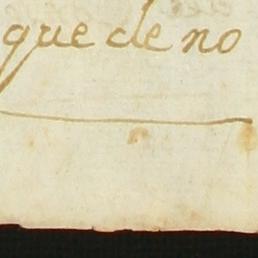 que de no